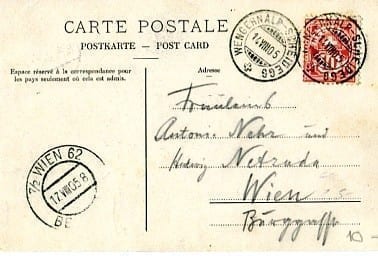 CARTE POSTALE
POSTKARTE — POST CARD
Espace réservé à la correspondance pour
les pays seulement où cela est admis.
Adresse
WENGERNALP-SCHEIDEGG
14.VIII.05
WENGERNALP-SCHEIDEGG
VIII.05
10
Antonie Nehr und
Hedwig Netruda
Wien
Burggasse
1/2 WIEN 62
17.VIII.05.8
10